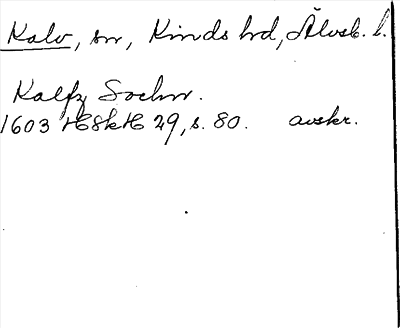 Kalv, sn, Kinds hd, Älvsb. l.
Kalfz Sochn.
1603 HSkH 29, s. 80. avskr.